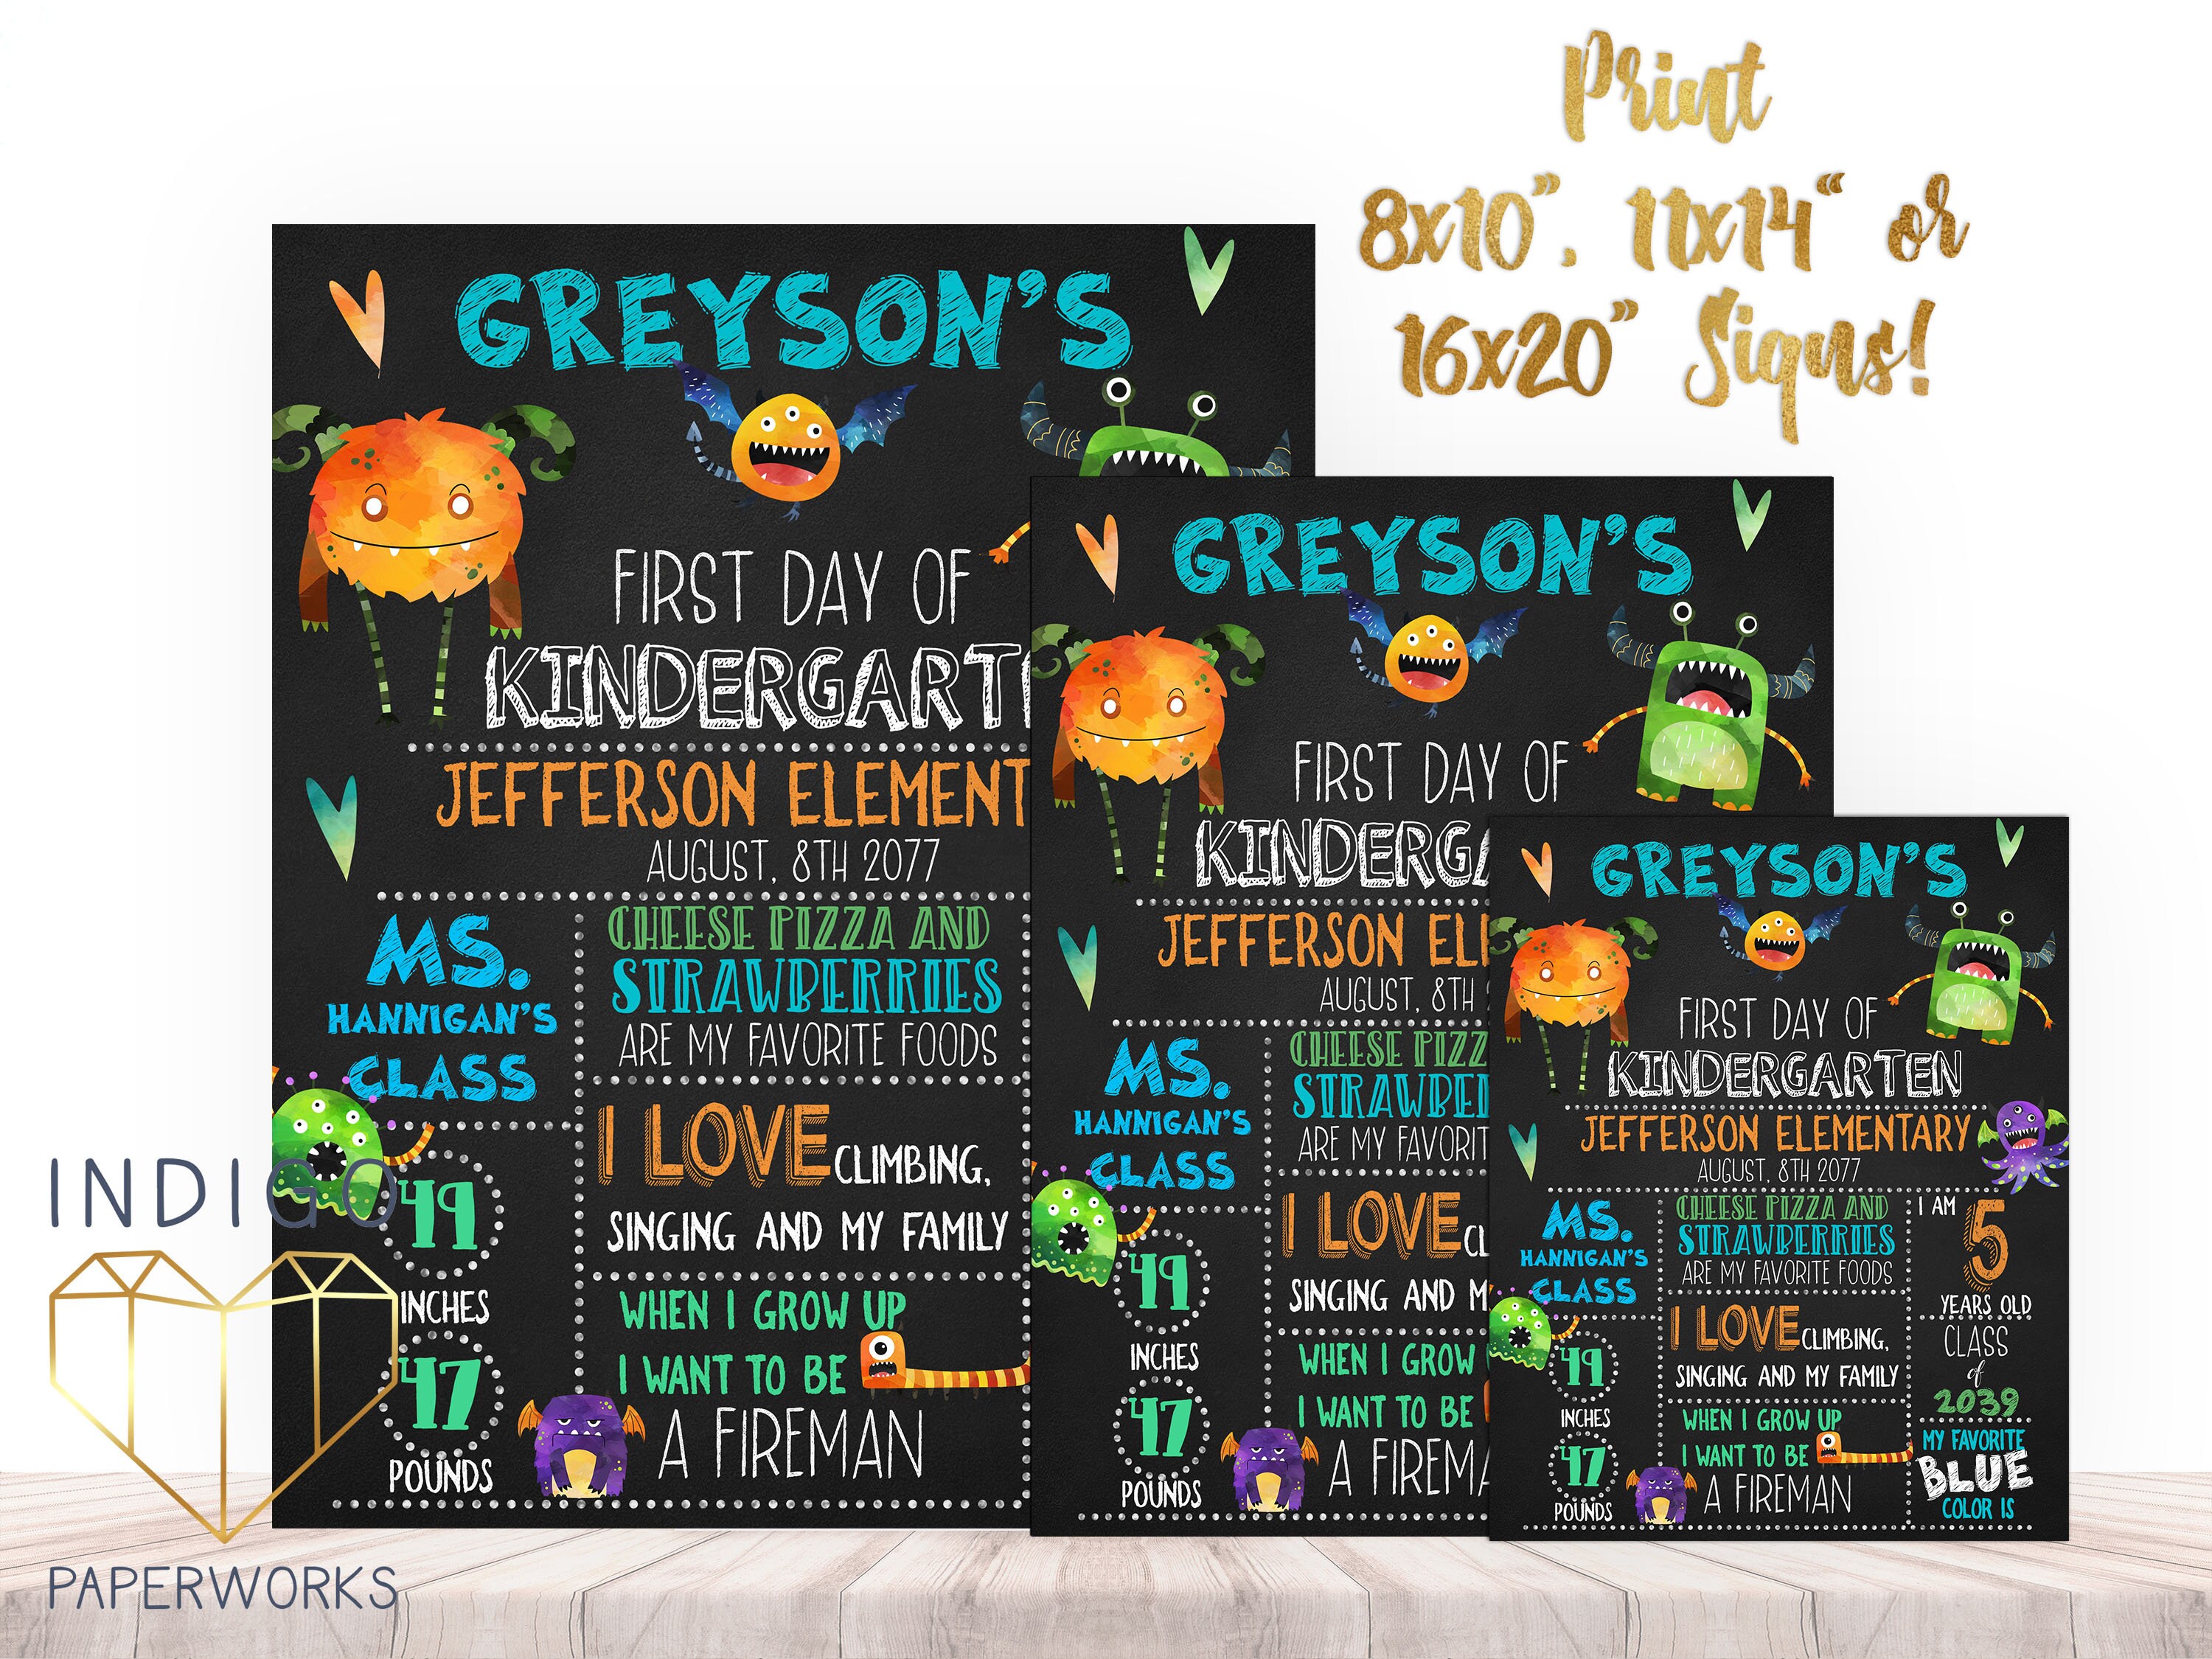 Print
8x10", 11x14" or
16x20" Signs!
GREYSON'S
FIRST DAY OF
KINDERGARTE
JEFFERSON ELEMENT
AUGUST, 8TH 2077
MS.
HANNIGAN'S
CLASS
49
INCHES
47
POUNDS
CHEESE PIZZA AND
STRAWBERRIES
ARE MY FAVORITE FOODS
I LOVE CLIMBING,
SINGING AND MY FAMILY
WHEN I GROW UP
I WANT TO BE
A FIREMAN
GREYSON'S
FIRST DAY OF
KINDERGA
JEFFERSON ELE
AUGUST, 8TH
MS.
HANNIGAN'S
CLASS
49
INCHES
47
POUNDS
CHEESE PIZZ
STRAWBER
ARE MY FAVORIT
I LOVE CL
SINGING AND M
WHEN I GROW
I WANT TO BE
A FIREMA
GREYSON'S
FIRST DAY OF
KINDERGARTEN
JEFFERSON ELEMENTARY
AUGUST, 8TH 2077
MS.
HANNIGAN'S
CLASS
49
INCHES
47
POUNDS
CHEESE PIZZA AND
STRAWBERRIES
ARE MY FAVORITE FOODS
I LOVE CLIMBING,
SINGING AND MY FAMILY
WHEN I GROW UP
I WANT TO BE
A FIREMAN
I AM 5
YEARS OLD
CLASS
of
2039
MY FAVORITE
BLUE
COLOR IS
INDIGO
PAPERWORKS